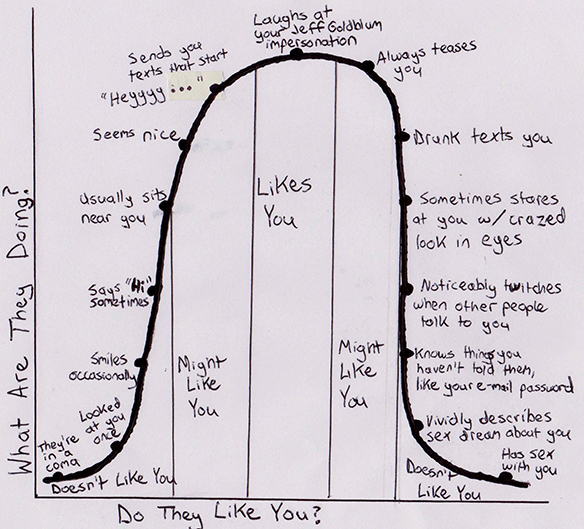 Laughs at
your Jeff Goldblum
impersonation
Sends you
texts that start
"Heyyyy..."
Always teases
you
Seems nice
Drunk texts you
Usually sits
near you
Likes
You
Sometimes stares
at you w/crazed
look in eyes
Says "Hi"
sometimes
Noticeably twitches
when other people
talk to you
Smiles
occasionally
Might
Like
You
Might
Like
You
Knows things you
haven't told them,
like your e-mail password
Looked
at you
once
Vividly describes
sex dream about you
They're
in a
coma
Has sex
with you
Doesn't Like You
Doesn't
Like You
What Are They Doing?
Do They Like You?